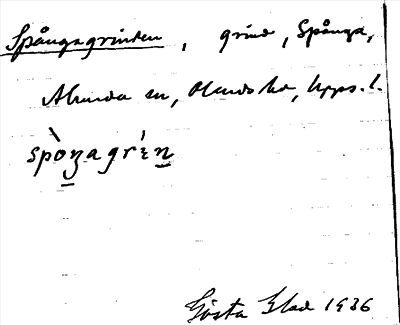 Spångagrinden, grind, Spånga,
Alunda sn, Olands hd, Upps. l.
spòŋagrìn
Gösta Blad 1936